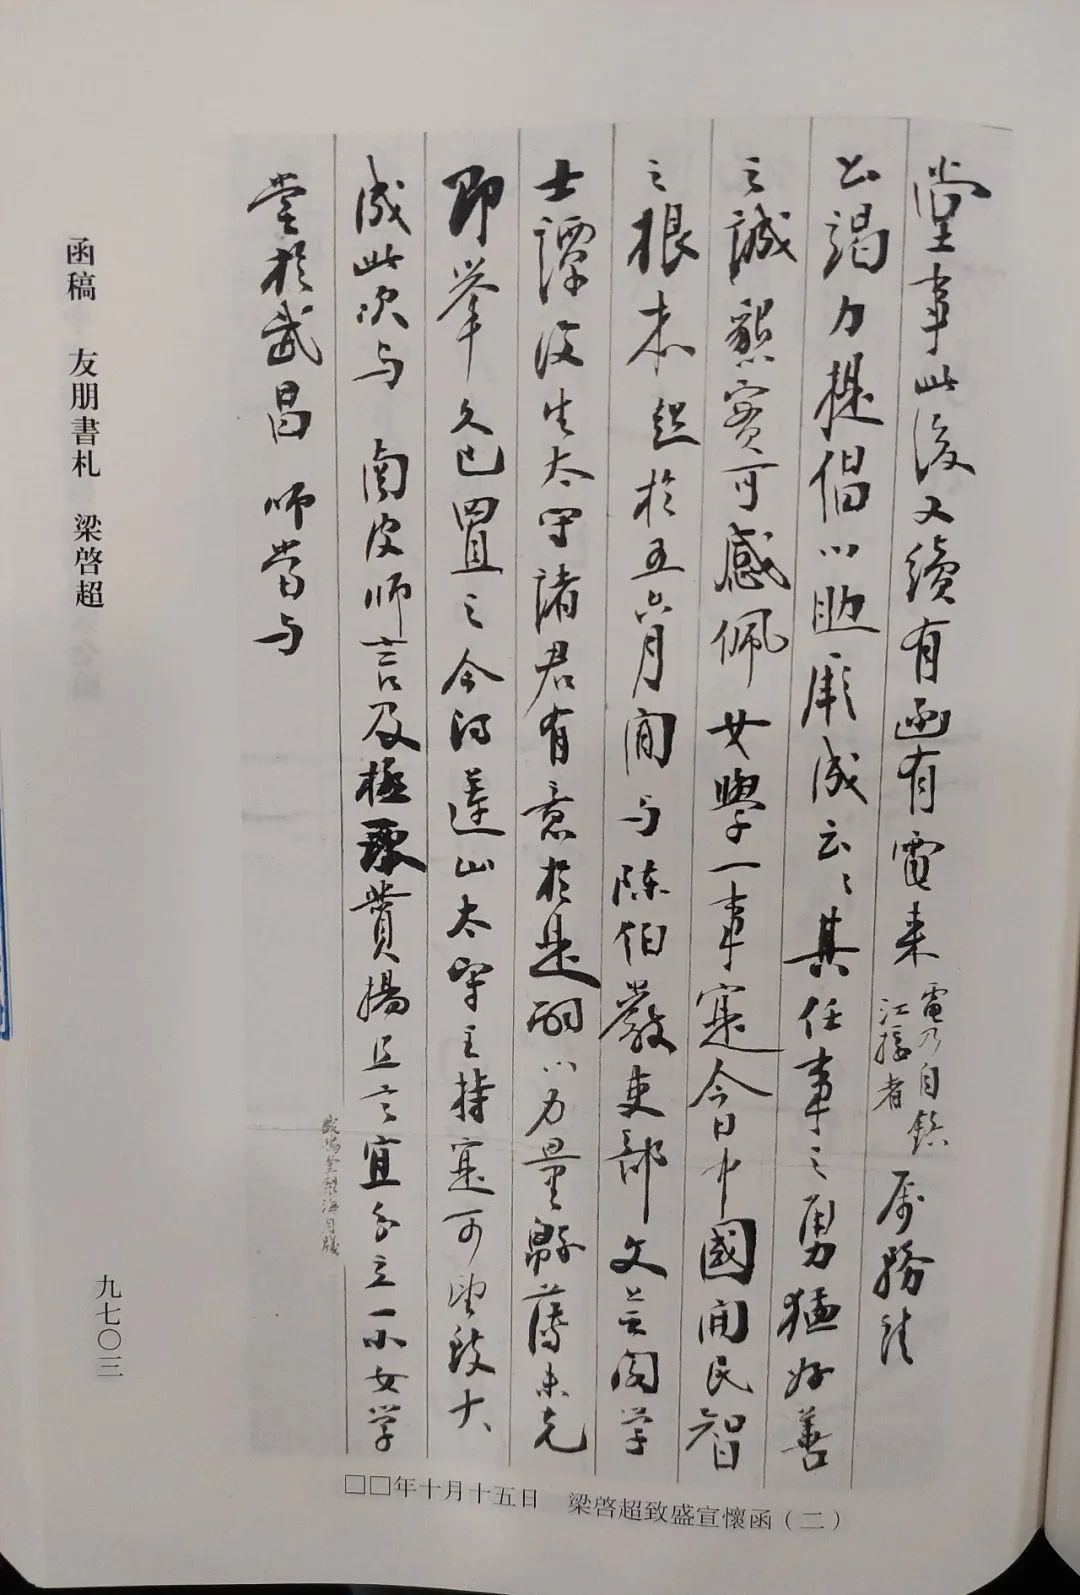 堂事此後又續有函有電來
電乃自鎮
江撥者
属務請
公竭力提倡以助厥成云々其任事之勇猛好善
之誠懇實可感佩女學一事寔今日中國開民智
之根本起於五六月間与陳伯嚴吏部文芸閣学
士譚復生太守諸君有意於是而以力量緜薄未克
即舉久已置之今得蓮山太守主持寔可望致大
成此次与 南皮師言及極承贊揚且言宜分立一小女学
堂於武昌 師當与
函稿 友朋書札 梁啓超
九七〇三
□□年十月十五日 梁啓超致盛宣懷函(二)